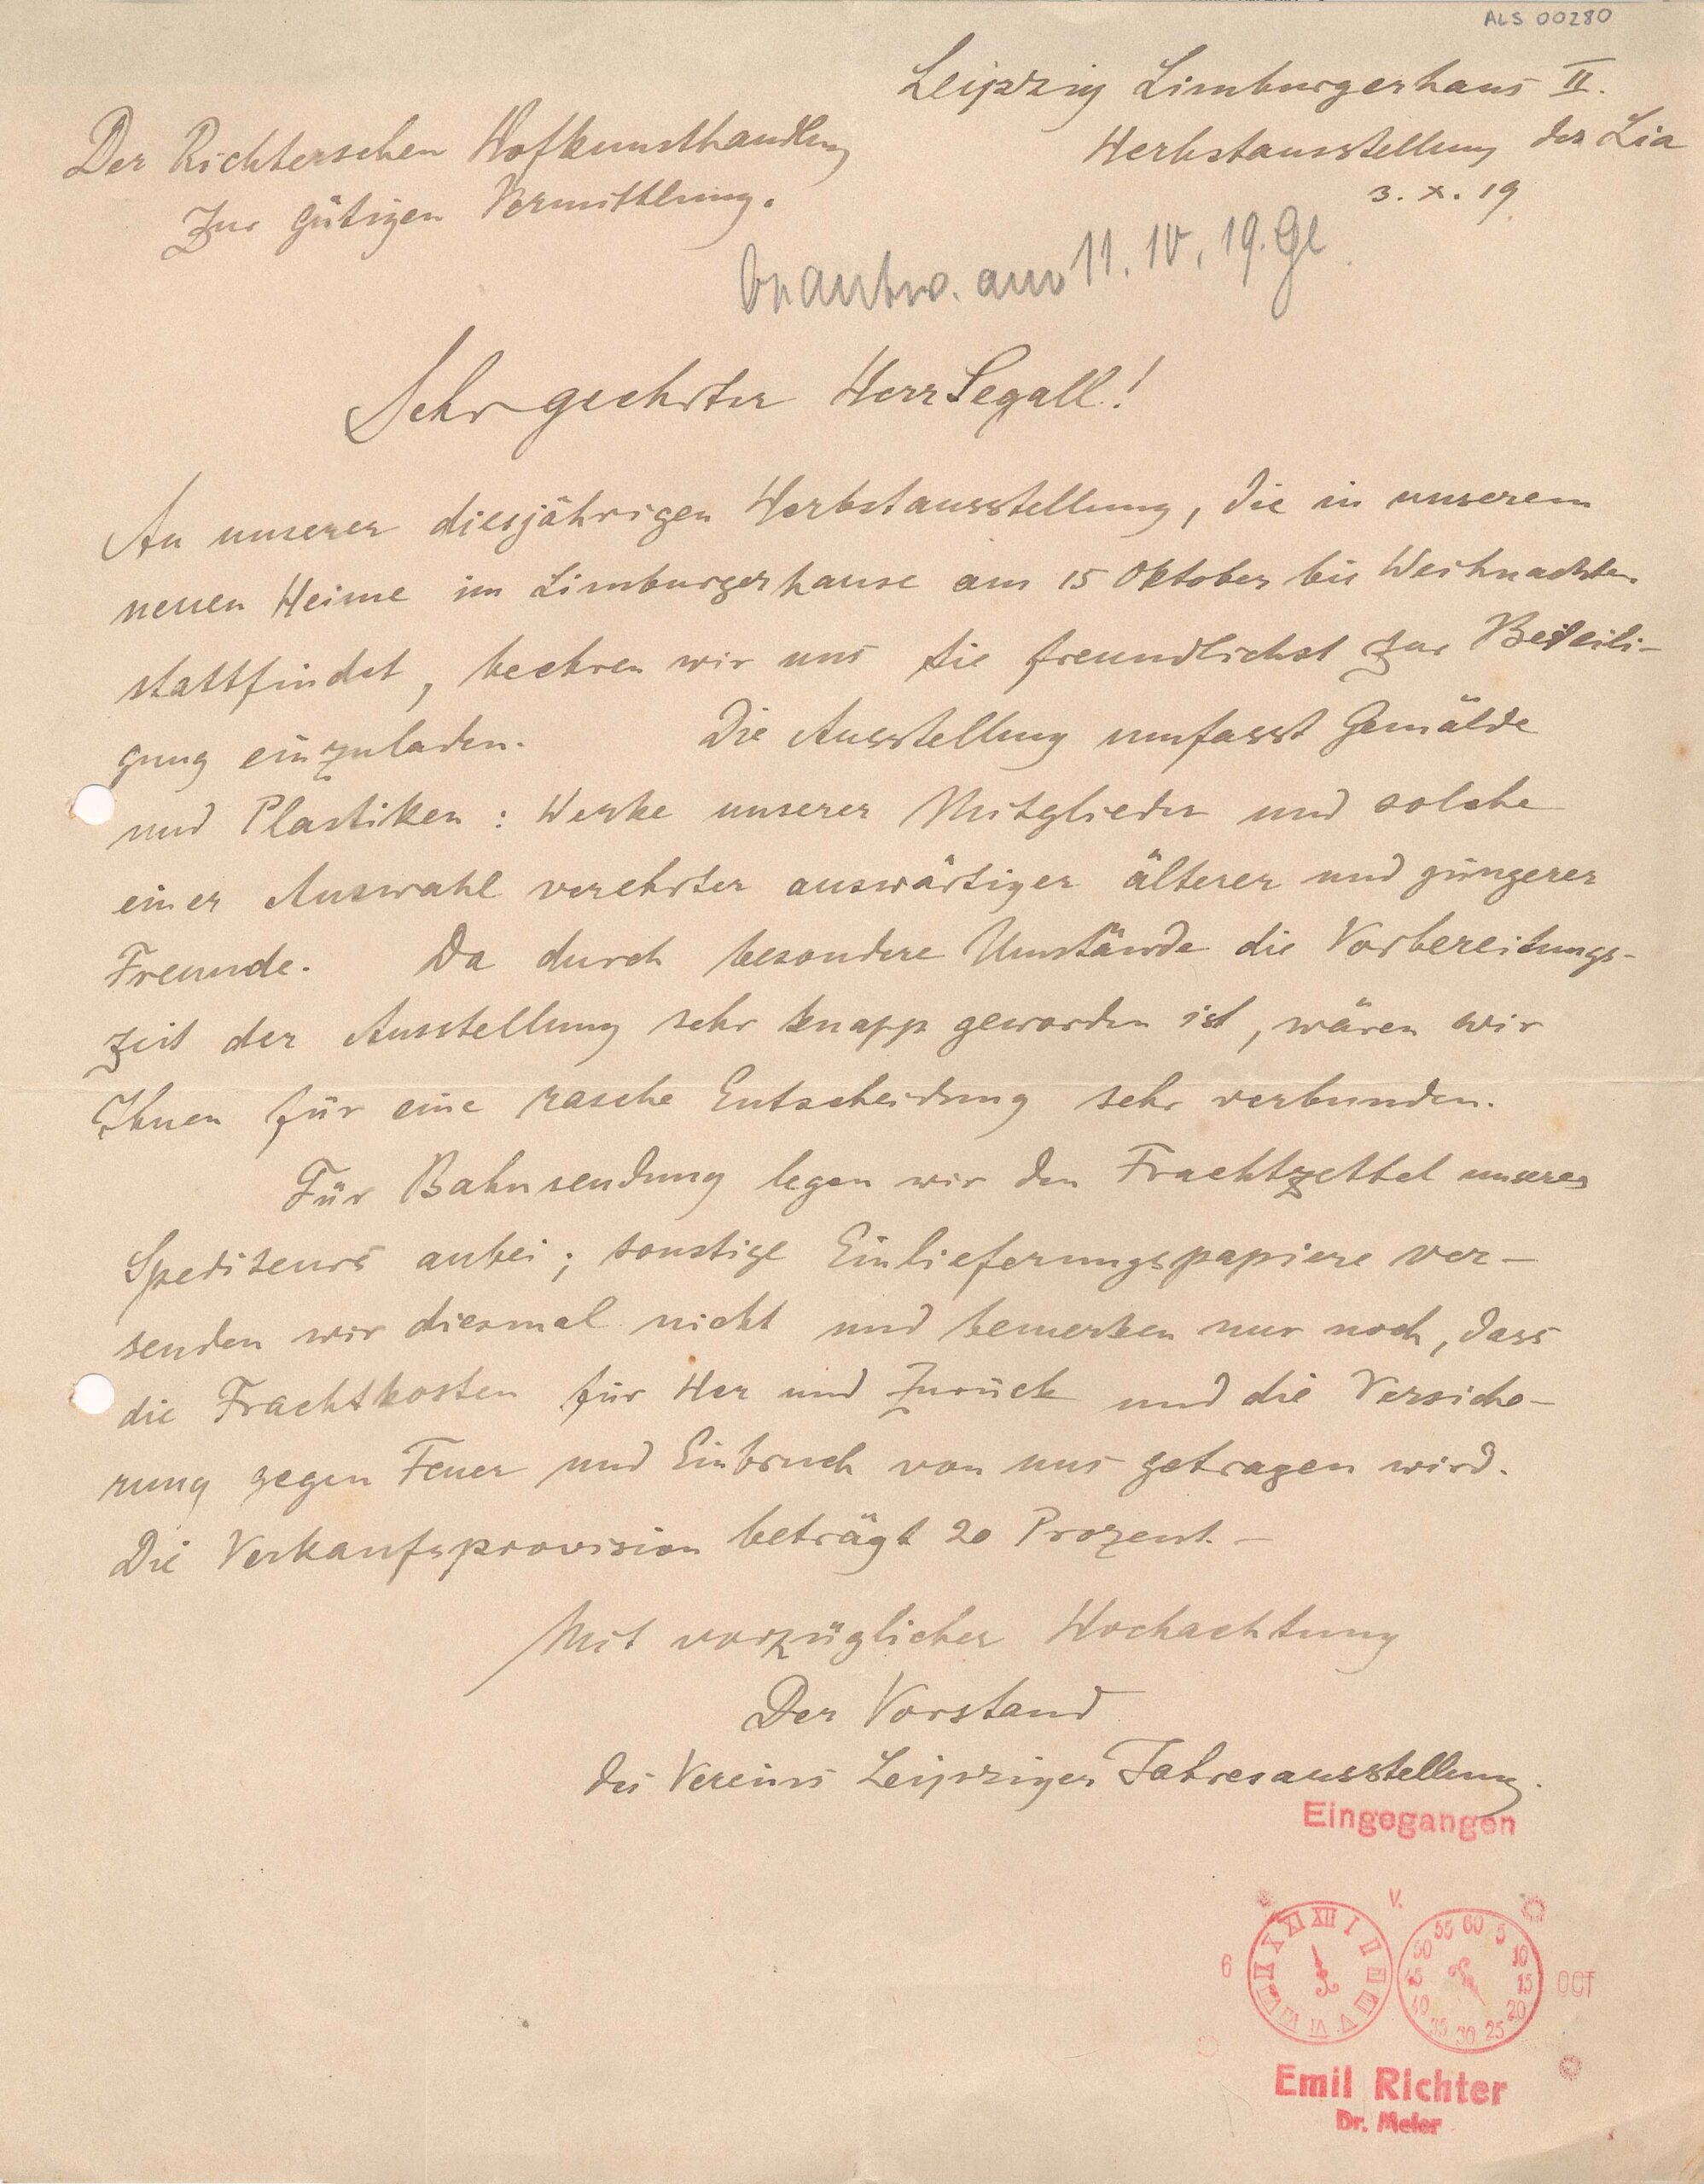 ALS 00280
Leipzig Limburgerhaus II.
Herbstausstellung der Lia
3. X. 19
Der Richterschen Hofkunsthandlung
Zur gütigen Vermittlung.
beantw. am 11. 10. 19. Gl.
Sehr geehrter Herr Segall!
An unserer diesjährigen Herbstausstellung, die in unserem
neuen Heime im Limburgerhause am 15 Oktober bis Weihnachten
stattfindet, beehren wir uns Sie freundlichst zur Beteili-
gung einzuladen. Die Ausstellung umfasst Gemälde
und Plastiken: Werke unserer Mitglieder und solche
einer Auswahl verehrter auswärtiger älterer und jüngerer
Freunde. Da durch besondere Umstände die Vorbereitungs-
zeit der Ausstellung sehr knapp geworden ist, wären wir
Ihnen für eine rasche Entscheidung sehr verbunden.
Für Bahnsendung legen wir den Frachtzettel unseres
Spediteurs anbei; sonstige Einlieferungspapiere ver-
senden wir diesmal nicht und bemerken nur noch, dass
die Frachtkosten für Her und Zurück und die Versiche-
rung gegen Feuer und Einbruch von uns getragen wird.
Die Verkaufsprovision beträgt 20 Prozent. -
Mit vorzüglicher Hochachtung
Der Vorstand
des Vereins Leipziger Jahresausstellung.
Eingegangen
V.
XII I II III IIII V VI VII VIII IX X XI
60 5 10 15 20 25 30 35 40 45 50 55
6 OCT
Emil Richter
Dr. Meier